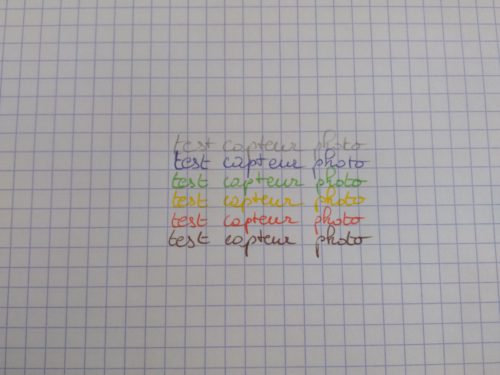 test capteur photo
test capteur photo
test capteur photo
test capteur photo
test capteur photo
test capteur photo